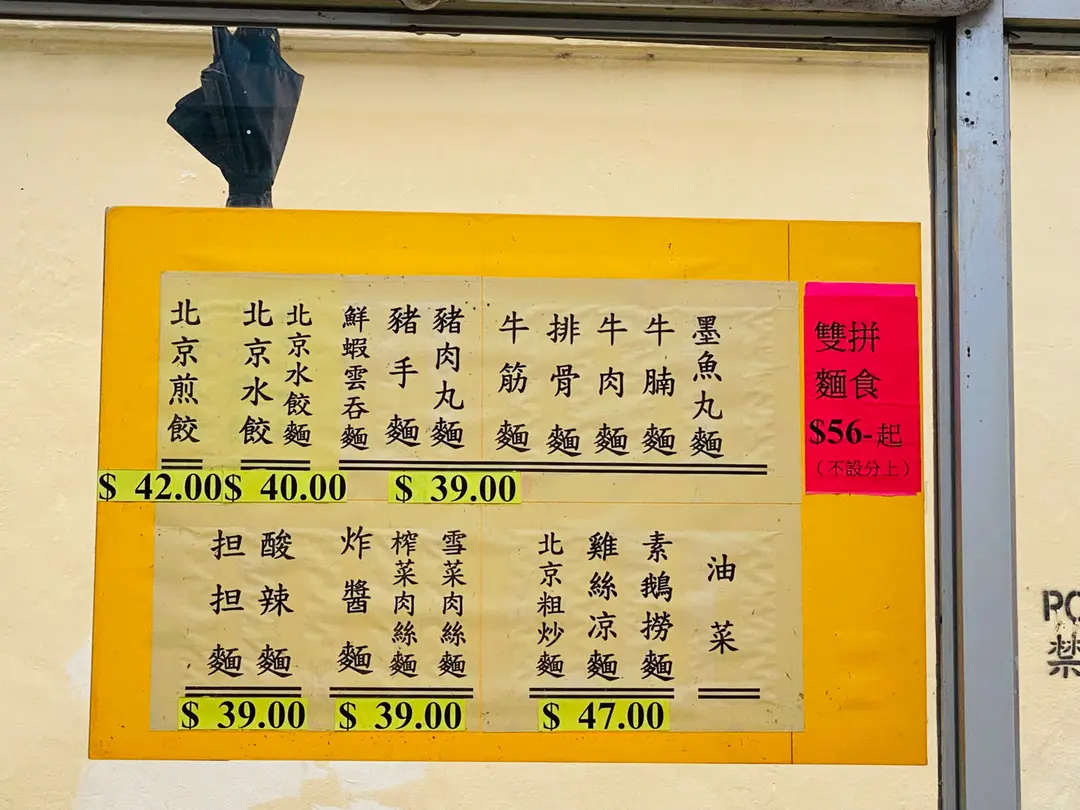 墨魚丸麵
牛腩麵
牛肉麵
排骨麵
牛筋麵
豬肉丸麵
豬手麵
鮮蝦雲吞麵
$ 39.00
北京水餃麵
北京水餃
$ 40.00
北京煎餃
$ 42.00
油菜
素鵝撈麵
雞絲凉麵
北京粗炒麵
$ 47.00
雪菜肉絲麵
榨菜肉絲麵
炸醬麵
$ 39.00
酸辣麵
担担麵
$ 39.00
雙拼
麵食
$56-起
（不設分上）